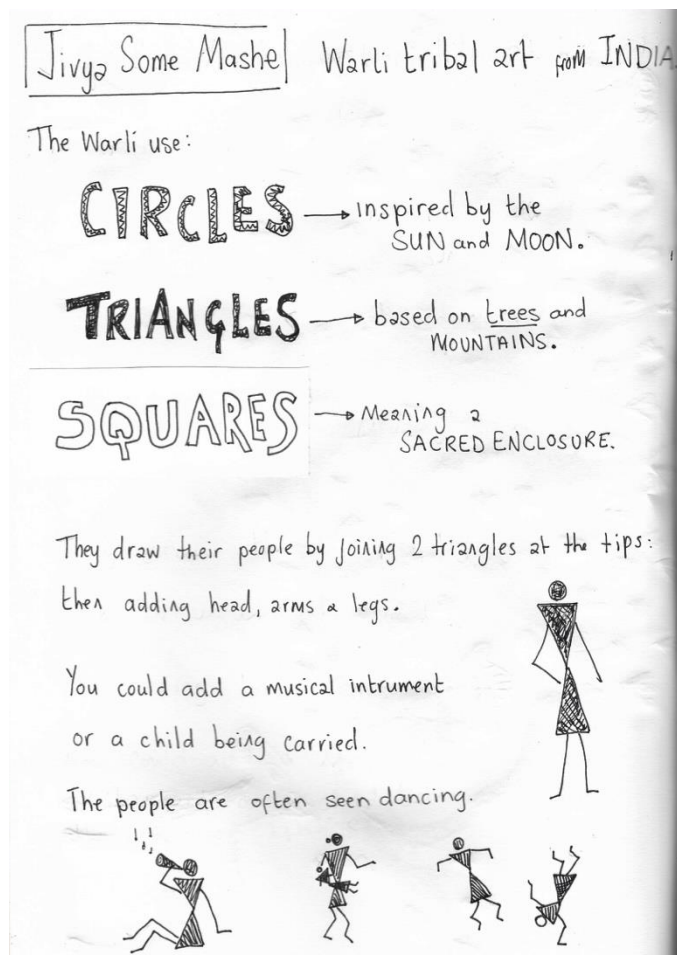 Jivya Some Mashe Warli tribal art from INDIA
The Warli use:
CIRCLES → inspired by the
SUN and MOON.
TRIANGLES → based on trees and
MOUNTAINS.
SQUARES → Meaning a
SACRED ENCLOSURE.
They draw their people by joining 2 triangles at the tips:
then adding head, arms & legs.
You could add a musical intrument
or a child being carried.
The people are often seen dancing.